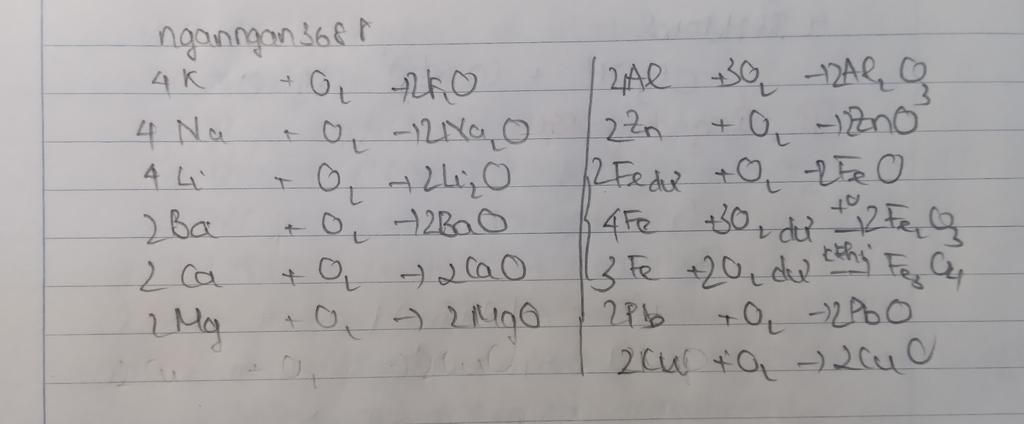 nganngan368
4K + O₂ → 2K₂O
4Na + O₂ → 2Na₂O
4Li + O₂ → 2Li₂O
2Ba + O₂ → 2BaO
2Ca + O₂ → 2CaO
2Mg + O₂ → 2MgO
4Al + 3O₂ → 2Al₂O₃
2Zn + O₂ → 2ZnO
2Fe dư + O₂ → 2FeO
4Fe + 3O₂ dư → 2Fe₂O₃
3Fe + 2O₂ dư → Fe₃O₄
2Pb + O₂ → 2PbO
2Cu + O₂ → 2CuO